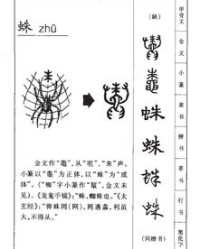 蛛 zhū
(缺)
甲骨文
金文
小篆
隶书
楷书
草书
行书
简化字
蛛
蛛
蛛
蛛
(同楷书)
金文作“鼄”。从“黽”,“朱”声。
小篆以“鼄”为正体,以“蛛”为“或
体”。(“蜘”字小篆作“𪓿”,金文未
见)。《龙龛手镜》:“蛛,蜘蛛也。”《太
玄经》:“蜘蛛罔(网),罔遇螽,利虽
大,不得从。”